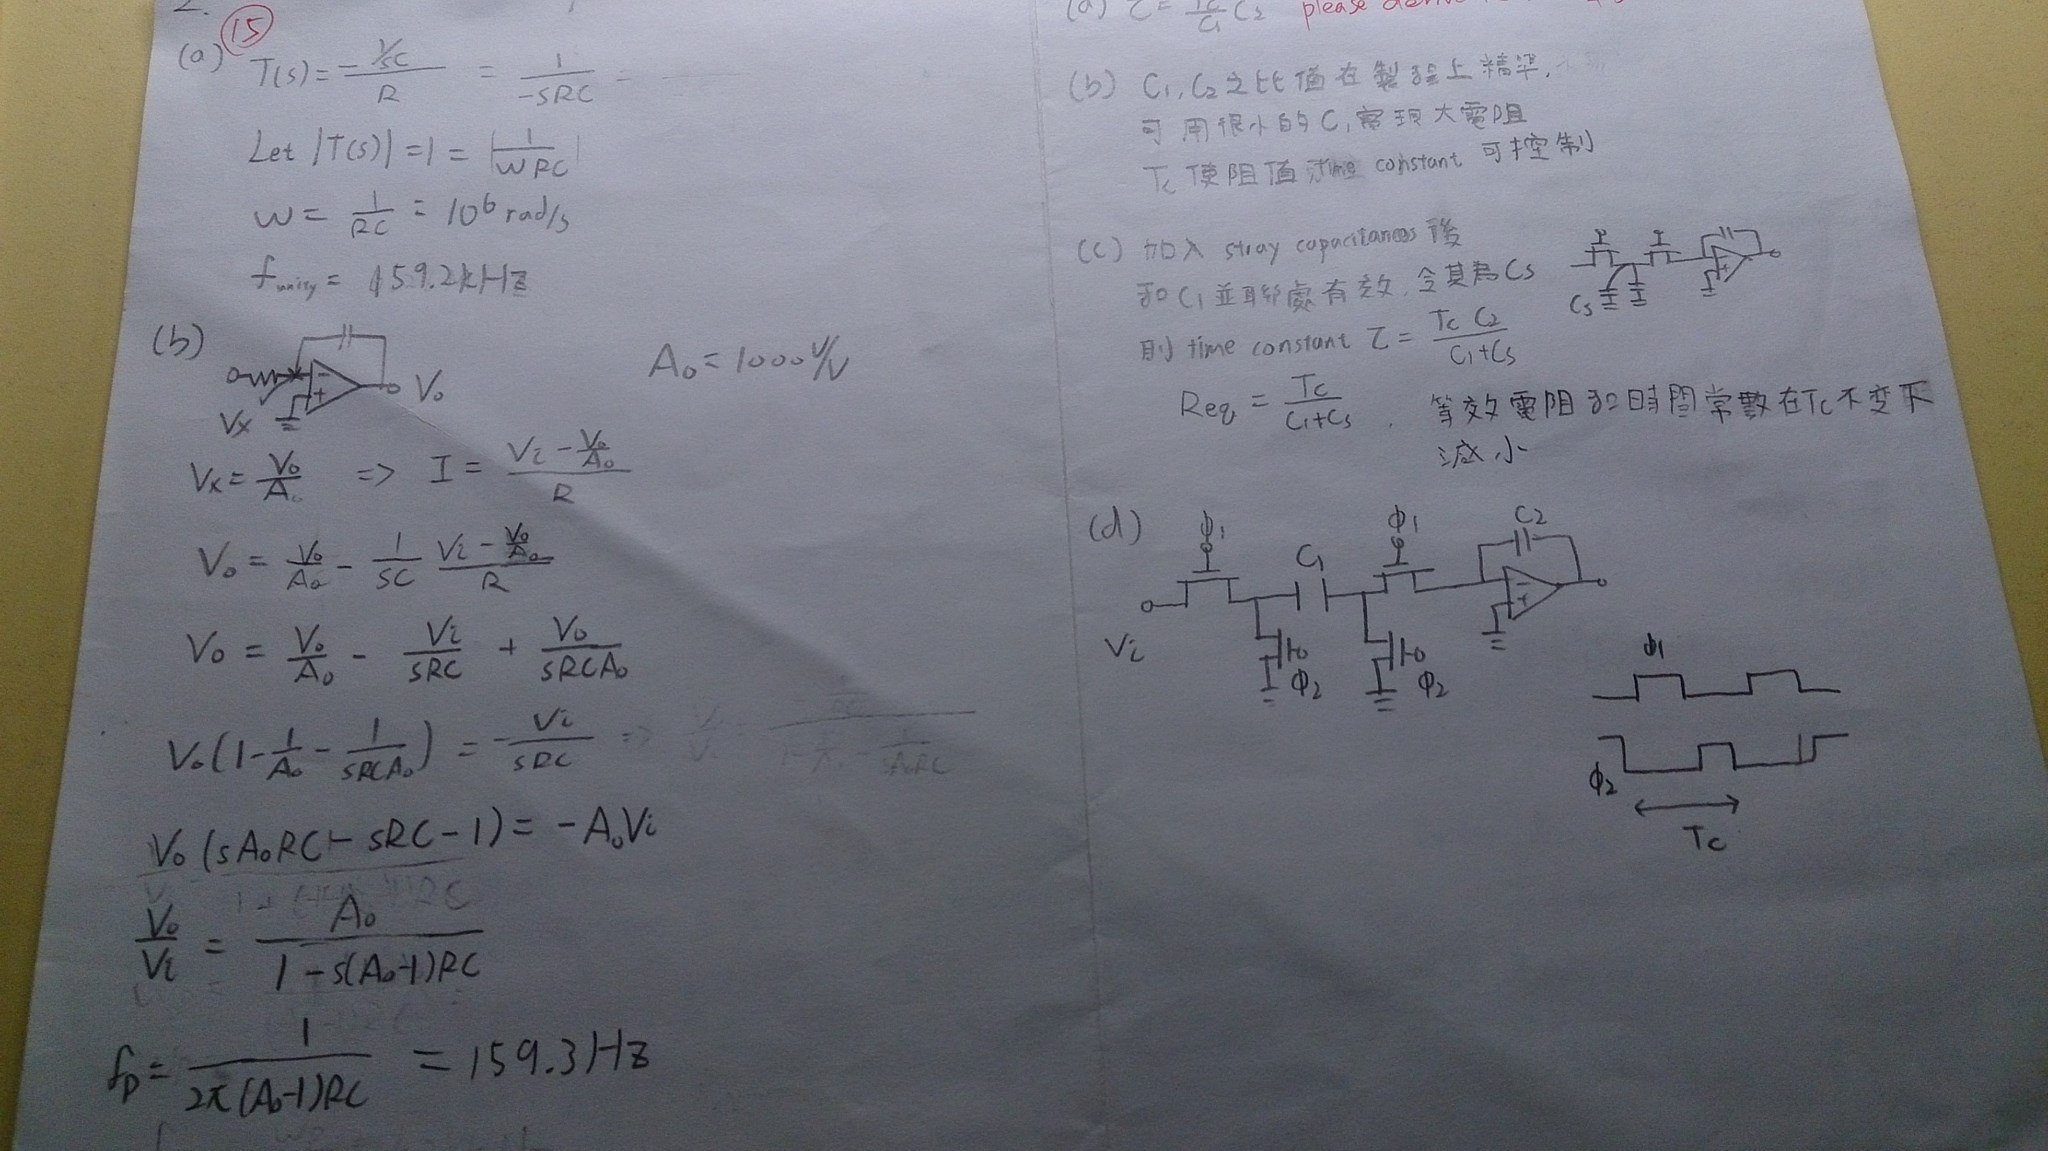 2.
15
(a) T(s) = -(1/sC)/R = 1/-sRC
Let |T(s)| = 1 = |1/WRC|
w = 1/RC = 10^6 rad/s
f_unity = 159.2kHz
(b)
Vx
Vo
A₀ = 1000 V/V
Vx = Vo/A₀ => I = (Vi - Vo/A₀)/R
Vo = Vo/A₀ - 1/sC (Vi - Vo/A₀)/R
Vo = Vo/A₀ - Vi/sRC + Vo/sRCA₀
Vo(1 - 1/A₀ - 1/sRCA₀) = -Vi/sRC
Vo(sA₀RC - sRC - 1) = -A₀Vi
Vo/Vi = A₀/(1 - s(A₀-1)RC)
fp = 1/(2π(A₀-1)RC) = 159.3Hz
(a) τ = Tc/C₁ C₂ please
(b) C₁, C₂之比值在製程上精準,
可用很小的C,實現大電阻
Tc使阻值 time constant 可控制
(c) 加入 stray capacitances 後
和C₁並聯處有效,令其為Cs
Cs
則 time constant τ = Tc C₂/(C₁+Cs)
Req = Tc/(C₁+Cs) , 等效電阻和時間常數在Tc不变下
減小
(d)
Φ1
Φ1
C₁
C2
Vi
Φ2
Φ2
Φ1
Φ2
Tc